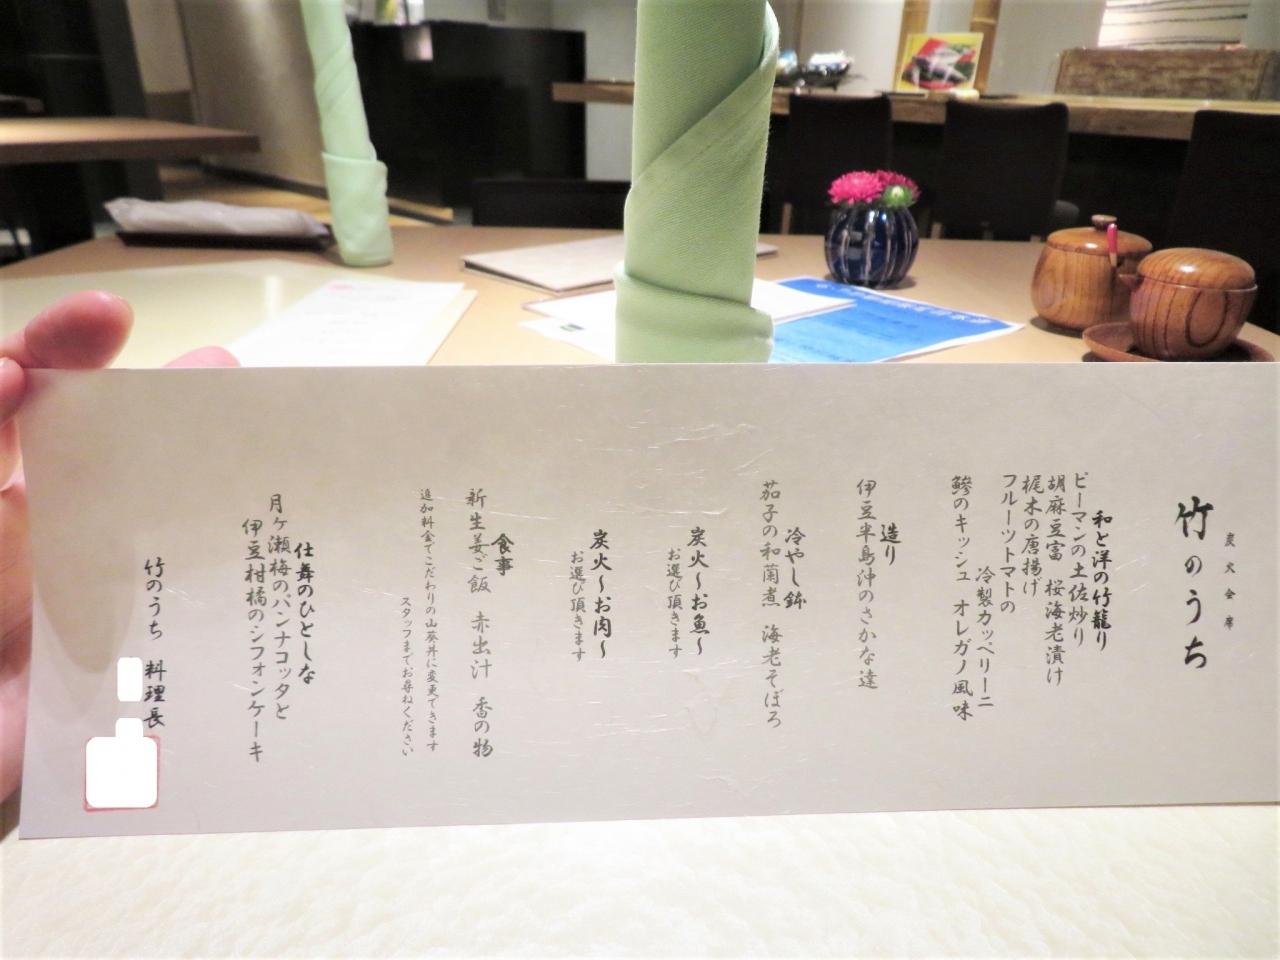 炭火会席
竹のうち
和と洋の竹籠り
ピーマンの土佐炒り
胡麻豆富　桜海老漬け
梶木の唐揚げ
フルーツトマトの
冷製カッペリーニ
鯵のキッシュ　オレガノ風味
造り
伊豆半島沖のさかな達
冷やし鉢
茄子の和蘭煮　海老そぼろ
炭火～お魚～
お選び頂きます
炭火～お肉～
お選び頂きます
食事
新生姜ご飯　赤出汁　香の物
追加料金でこだわりの山葵丼に変更できます
スタッフまでお尋ねください
仕舞のひとしな
月ヶ瀬梅のパンナコッタと
伊豆柑橘のシフォンケーキ
竹のうち　料理長